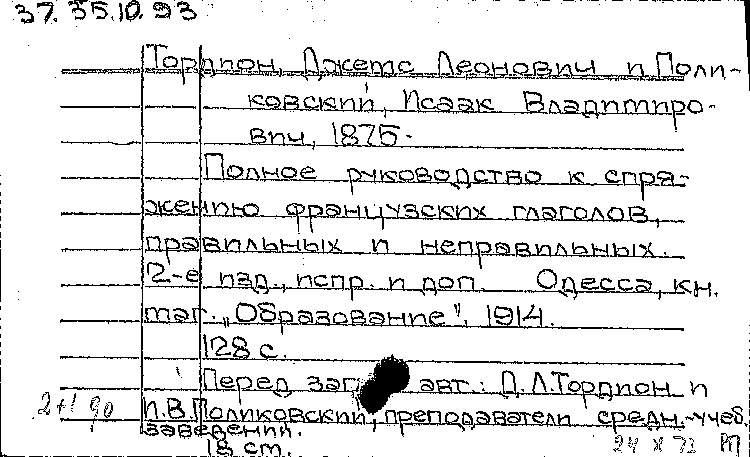 37. 35.10.93
Тордион, Джемс Леонович и Поли-
ковский, Исаак Владимиро-
вич, 1875-
Полное руководство к спря-
жению французских глаголов,
правильных и неправильных.
2-е изд., испр. и доп. Одесса, кн.
маг. „Образование", 1914.
128 с.
Перед заг. авт.: Д.Л.Тордион и
И.В.Поликовский, преподаватели средн. учеб.
заведений.
18 cm.
2+1 90
24 X 73 РП